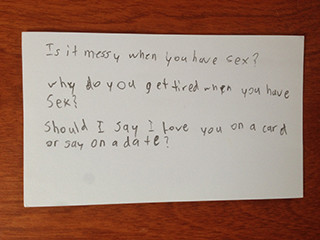 Is it messy when you have sex?
why do you get tired when you have
Sex?
Should I say I love you on a card
or say on a date?